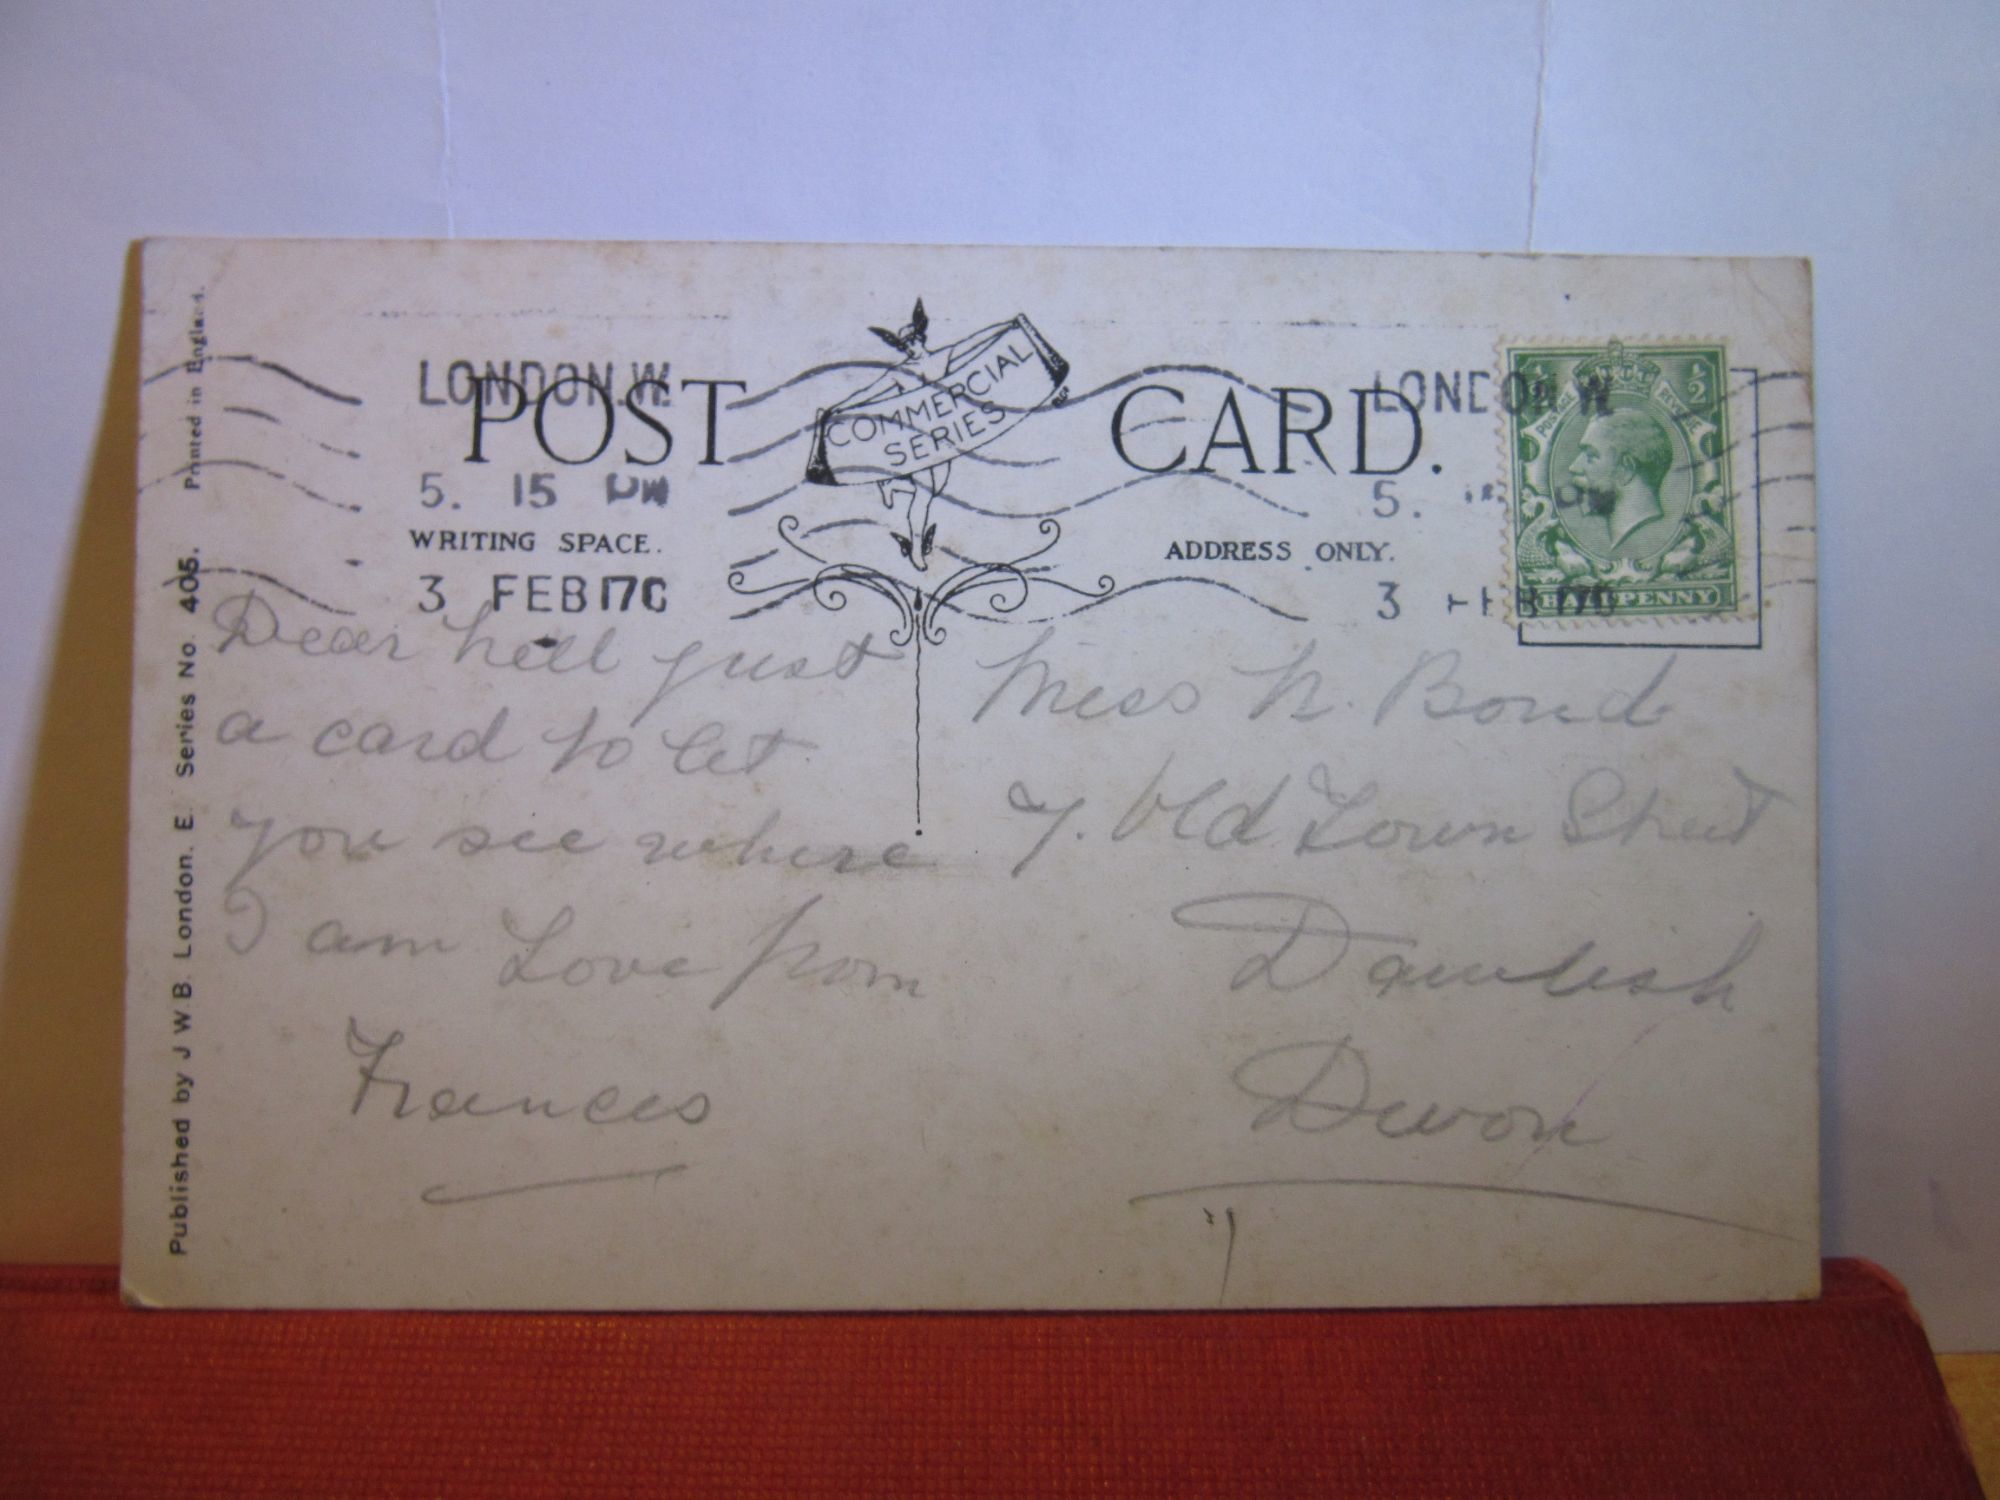 POST CARD.
COMMERCIAL
SERIES
LONDON. W.
5. 15 PM
3 FEB 17 C
LONDON W.
5.
3 FEB 17
POSTAGE REVENUE
½ ½
HALFPENNY
WRITING SPACE.
ADDRESS ONLY.
Published by J W. B. London. E. Series No. 405. Printed in England.
Dear Nell just
a card to let
you see where
I am Love from
Frances
Miss N. Bond
7. Old Town Street
Dawlish
Devon